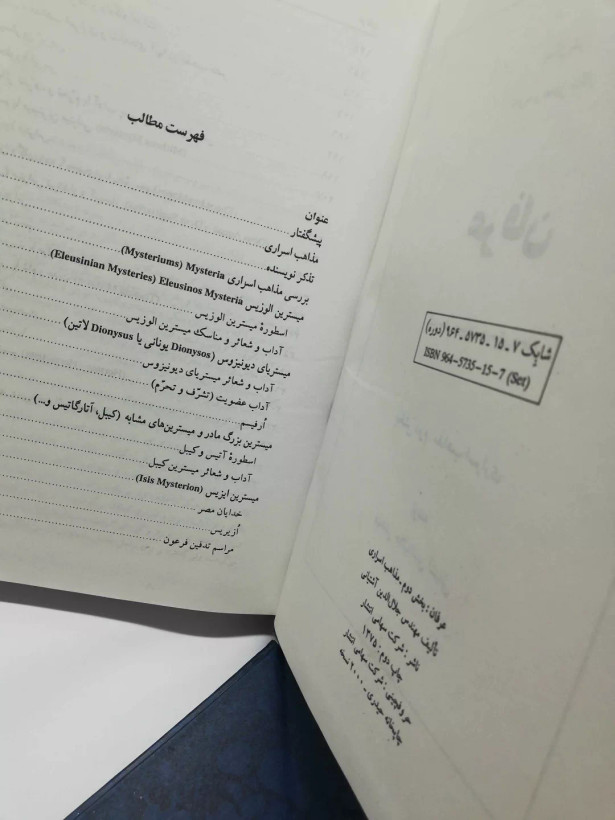 فهرست مطالب
عنوان
پیشگفتار
مذاهب اسراری
تذکر نویسنده
بررسی مذاهب اسراری Mysteria (Mysteriums)
میسترین الوزیس Eleusinos Mysteria (Eleusinian Mysteries)
اسطورهٔ میسترین الوزیس
آداب و شعائر و مناسک میسترین الوزیس
میستریای دیونیزوس (Dionysos یونانی یا Dionysus لاتین)
آداب و شعائر میستریای دیونیزوس
آداب عضویت (تشرّف و تحرّم)
اُرفیسم
میسترین بزرگ مادر و میسترین‌های مشابه (کیبل، آتارگاتیس و...)
اسطورهٔ آتیس و کیبل
آداب و شعائر میسترین کیبل
میسترین ایزیس (Isis Mysterion)
خدایان مصر
اُزیریس
مراسم تدفین فرعون
عرفان
شابک ۷ ـ ۱۵ ـ ۵۷۳۵ ـ ۹۶۴ (دوره)
ISBN 964-5735-15-7 (Set)
عرفان : بخش دوم ـ مذاهب اسراری
تألیف مهندس جلال‌الدین آشتیانی
ناشر : شرکت سهامی انتشار
چاپ دوم : ۱۳۷۵
حروفچینی : شرکت سهامی انتشار
چاپخانه حیدری ـ ۲۰۰۰ نسخه